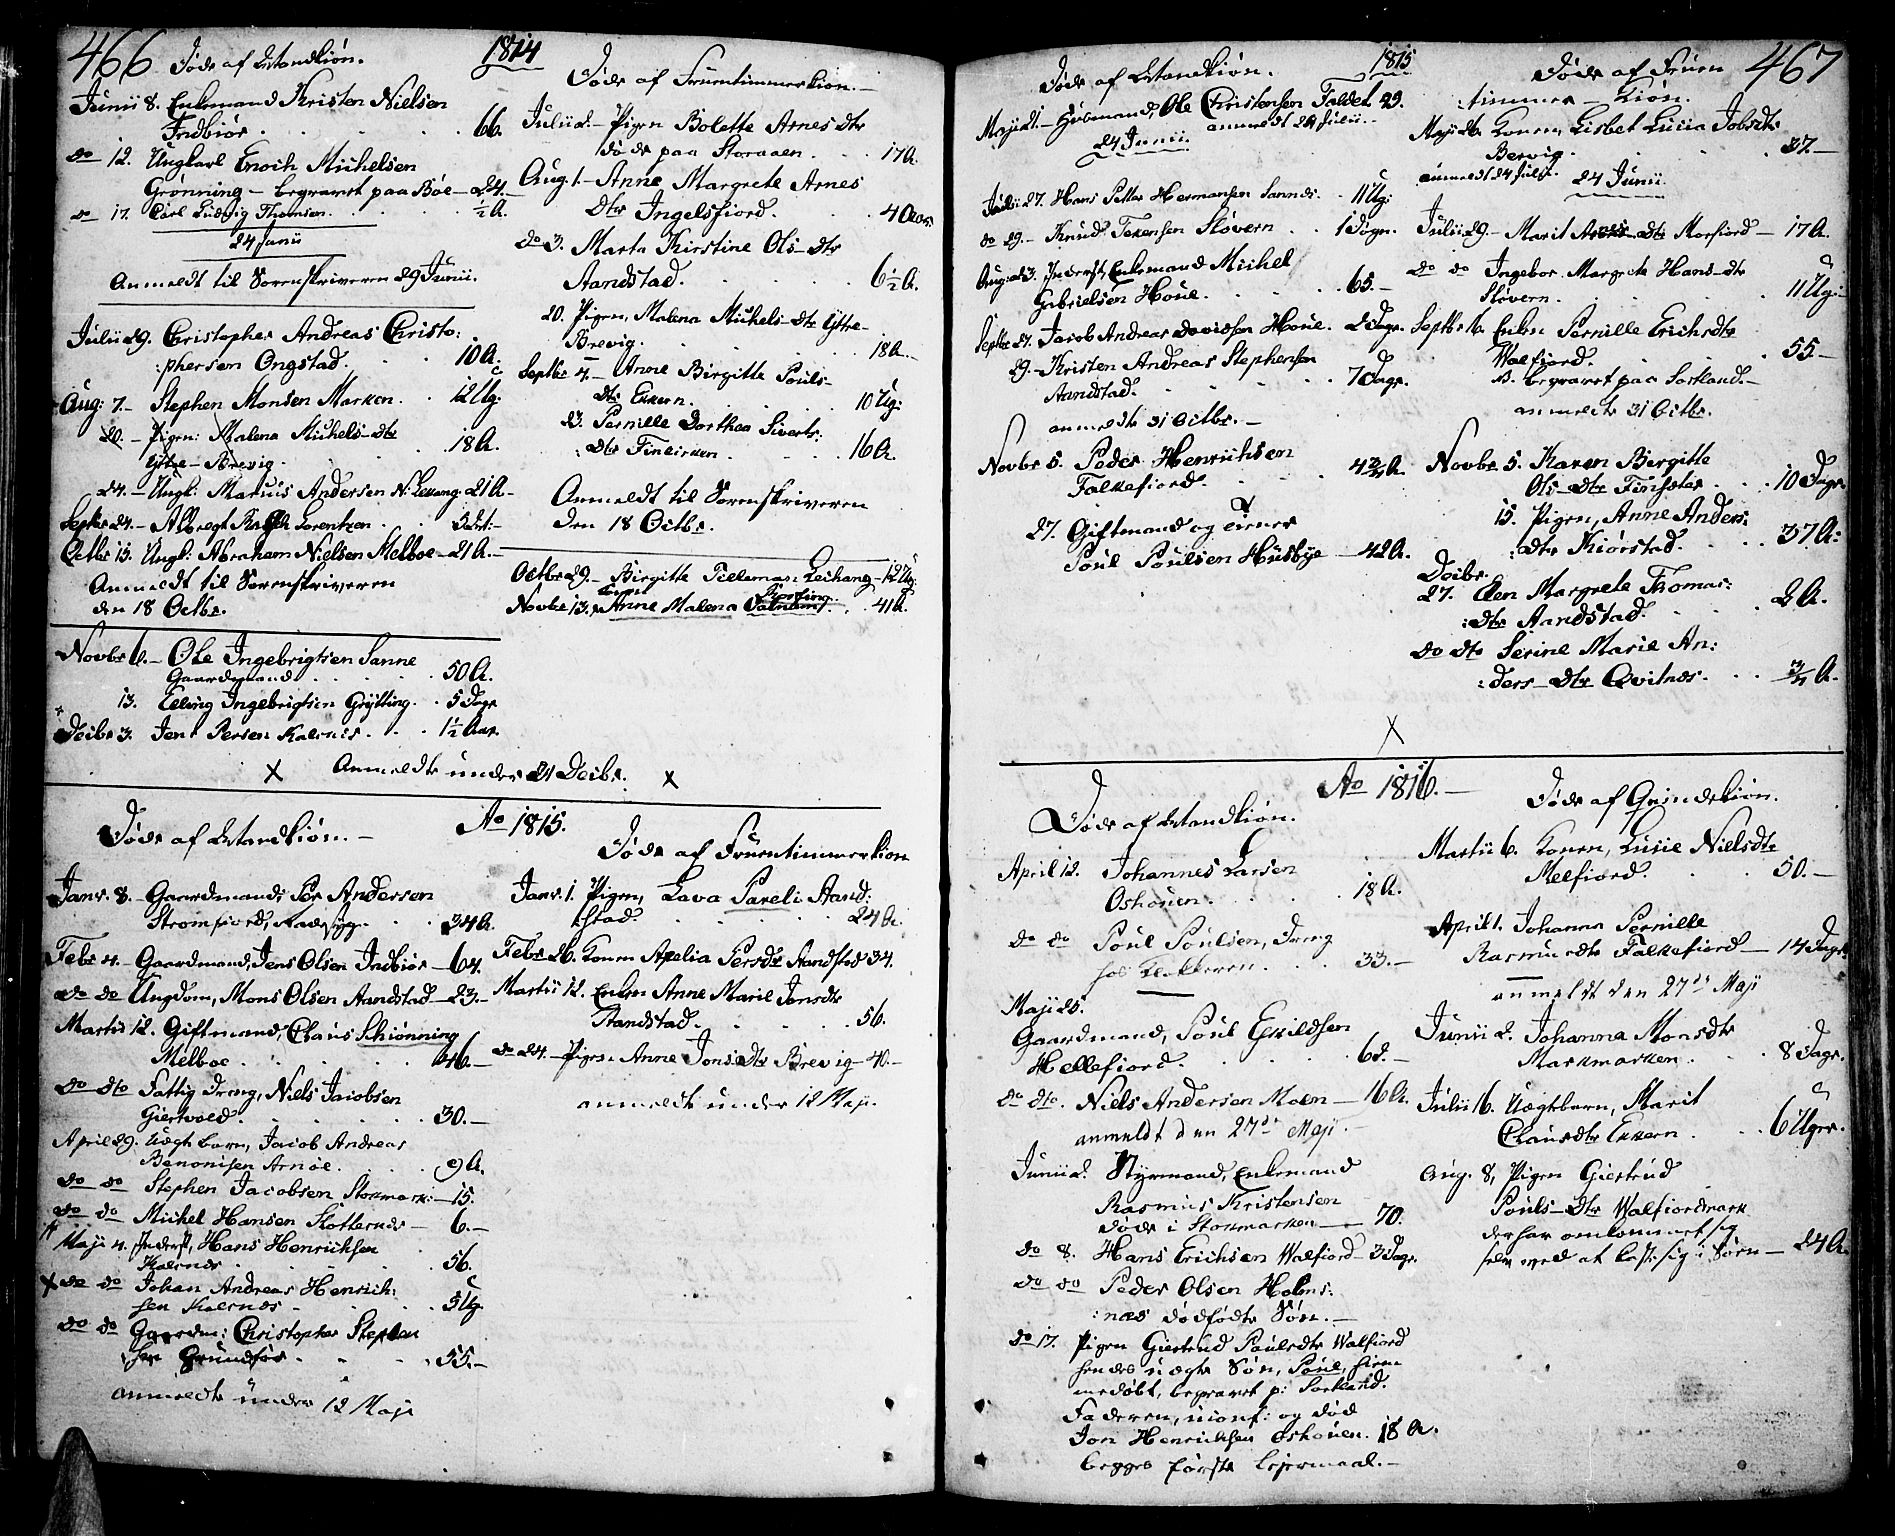 466
Døde af Mandkiøn.
1814
Junii 8. Enkemand Kristen Nielsen
Indbiør . . . 66.
do 12. Ungkarl Enoch Michelsen
Grønning – begravet paa Bøe – 24.
do 17. Carl Ludvig Thomsen . . ½ A.
24 Junii
Anmeldt til Sorenskriveren 29 Junii.
Julii 29. Christopher Andreas Christo:
:phersen Ongstad. 10 A.
Aug: 7. – Stephen Monsen Marken . . 12 Ug:
20. – Pigen: Malena Michels-dtr
Ytre – Brevig . . 18 A.
24. – Ungk: Marius Andersen N: Lekang. 21 A –
Septbr 24. – Albregt Lorentzen . .
Octbr 15. Ungk: Abraham Nielsen Melboe – 21 A. –
Anmeldt til Sorenskriveren
den 18 Octbr.
Novbr 6. – Ole Ingebrigtsen Sanne
Gaardmand . . . 50 A.
13. Elling Ingebrigtsen Grytting . 5 Dage
Decbr 3. Jens Persen Kalsnæs . . 1½ Aar.
Anmeldte under 31 Decbr.
Døde af Fruentimmerkiøn. –
Julii 2. – Pigen Bolette Arnes dtr
døde paa Storaaen . . . 17 A.
Aug. 1 – Anne Margrete Arnes
dtr Ingelsfiord . . 4 Aar
do 3. Marta Kirstine Ols-dtr
Aandstad . . . 6½ A.
20. Pigen, Malena Michels-dtr Ytre-
Brevig . . . 18 A. –
Septbr 4. – Anne Birgitte Pouls-
dtr Ekkern . . . 10 Ug:
23. Pernille Dorthea Siverts:
:dtr . . . 16 A.
Anmeldt til Sorenskriveren
den 18 Octbr.
Octbr 29. – Birgitte Tellemas: Lekang – 12 Ug:
Novbr 13. Konen Anne Malena . . 41 A.
Ao 1815.
Døde af Mandkiøn. –
Janv. 8. – Gaardmand, Per Andersen
Stromfiord, . . 34 A.
Febr 4. – Gaardmand, Jens Olsen Indbiør – 64.
do do Ungdom, Mons Olsen Aandstad – 23. –
Martii 12. Giftmand, Claus Schiønning
Melboe . . . 46. –
do dto Fattig Dreng, Niels Jacobsen
Giertvold . . . 30. –
April 29. Uægte barn, Jacob Andreas
Benonisen Arnøe . . . 9 A.
do do Stephen Jacobsen Stokmark: – 15.
do do Michel Hansen Slotternæs – 6. –
Maji 4. Inderst, Hans Henrichsen
Kalsnæs . . . 56.
do do Johan Andreas Henrich:
sen Kalsnæs – . . 5 Ug.
do do Gaardm: Christopher Stephen
sen Grundfør . . . 55. –
anmeldte under 12 Maji
Døde af Fruentimmerkiøn
Janv. 1. Pigen, Lava Pareli Aand:
:stad . . . 24 A.
Febr 26. Konen Apelia Persdr Aandstad 34.
Martii 12. Enken Anne Marie Jonsdtr
Aandstad . . . 56.
do 24. – Pigen Anne Jonsdtr Brevig – 40. –
anmeldte under 12 Maji.
1815
467
Døde af Mandkiøn.
Maji 21. – Huusmand, Ole Christensen Faldet 29.
anmeldt 24 Julii. –
24 Junii.
Julii 27. Hans Petter Hermansen Sannes . . 11 Ug:
do 29. – Knud Tekensen Sløvern . . 1 Dogn.
Aug: 23. Inderst, Enkemand Michel
Gabrielsen Houe . . . 65. –
Septbr 27. Jacob Andreas Davidsen Houe. 2 Dage.
29. – Kristen Andreas Stephensen
Aandstad . . . 7 Dage.
anmeldte 31 Octbr. –
Novbr 5. Peder Henrichsen
Falkefiord . . . 4¾ A.
27. Giftmand og Eiener
Poul Poulsen Huusbye – 42 A.
Døde af Fruen
timmer – Kiøn.
Maji 26. Konen Lisbet Lucia Jobsdtr
Bervig . . . 37. –
anmeldt 24 Julii. 24 Junii
Julii 29. – Marit dtr Morfiord – 17 A.
do do Ingebor Margrete Hans-dtr
Sløvern . . . 11 Ug:
Septbr 16. Enken Pernille Erichsdtr
Walfiord . . . 55 –
NB. begravet paa Sortland. –
anmeldte 31 Octbr.
Novbr 5. Karen Bergitte
Ols-dtr Finsæter . . . 10 Dage.
15. Pigen, Anne Anders:
:dtr Kiørstad . . . 37 A:
Decbr
27. Elen Margrete Thomas:
:dtr Aandstad . . . 2 A.
do dto Serine Marie An:
:ders-dtr Qvitnæs . . . ¾ A.
Ao 1816. –
Døde af Mandkiøn.
April 12. Johannes Larsen
Oshouen . . . 18 A.
do do Poul Poulsen, dreng
hos Klokkeren . . . 33. –
Maji 25.
Gaardmand, Poul Eskildsen
Hellefiord . . . 62. –
do dto. Niels Andersen Moln – 16 A.
anmeldt den 27de Maji. –
Junii 2. Styrmand, Enkemand
Rasmus Kristensen
døde i Stokmarken – 70.
do 8. Hans Erichsen Walfiord – 3 Dage.
do do Peder Olsen Holms:
:næs dødfødte Søn. –
do 17. Pigen Giertrud Poulsdtr Walfiord
hendes uægte Søn, Poul, hiem
medøbt, begravet p: Sortland.
Faderen, og død
Jon Henrichsen Oshouen. 18 A.
begges første Leiermaal. –
Døde af Qvindekiøn.
Martii 6. Konen, Lusie Nielsdtr
Melfiord . . . 50. –
April 1. Johanna Pernille
Rasmusdtr Falkefiord – 14 Dage.
anmeldt den 27de Maji
Junii 2. Johanna Monsdtr
Markmarken . . . 8 Dage.
Julii 16. Uægtebarn, Marit
Clausdtr Ekkern . . . 6 Uger.
Aug. 8, Pigen Giertrud
Pouls-dtr Walfiordmark
der har omkommet sig
selv ved at kaste sig i Søen – 24 A.